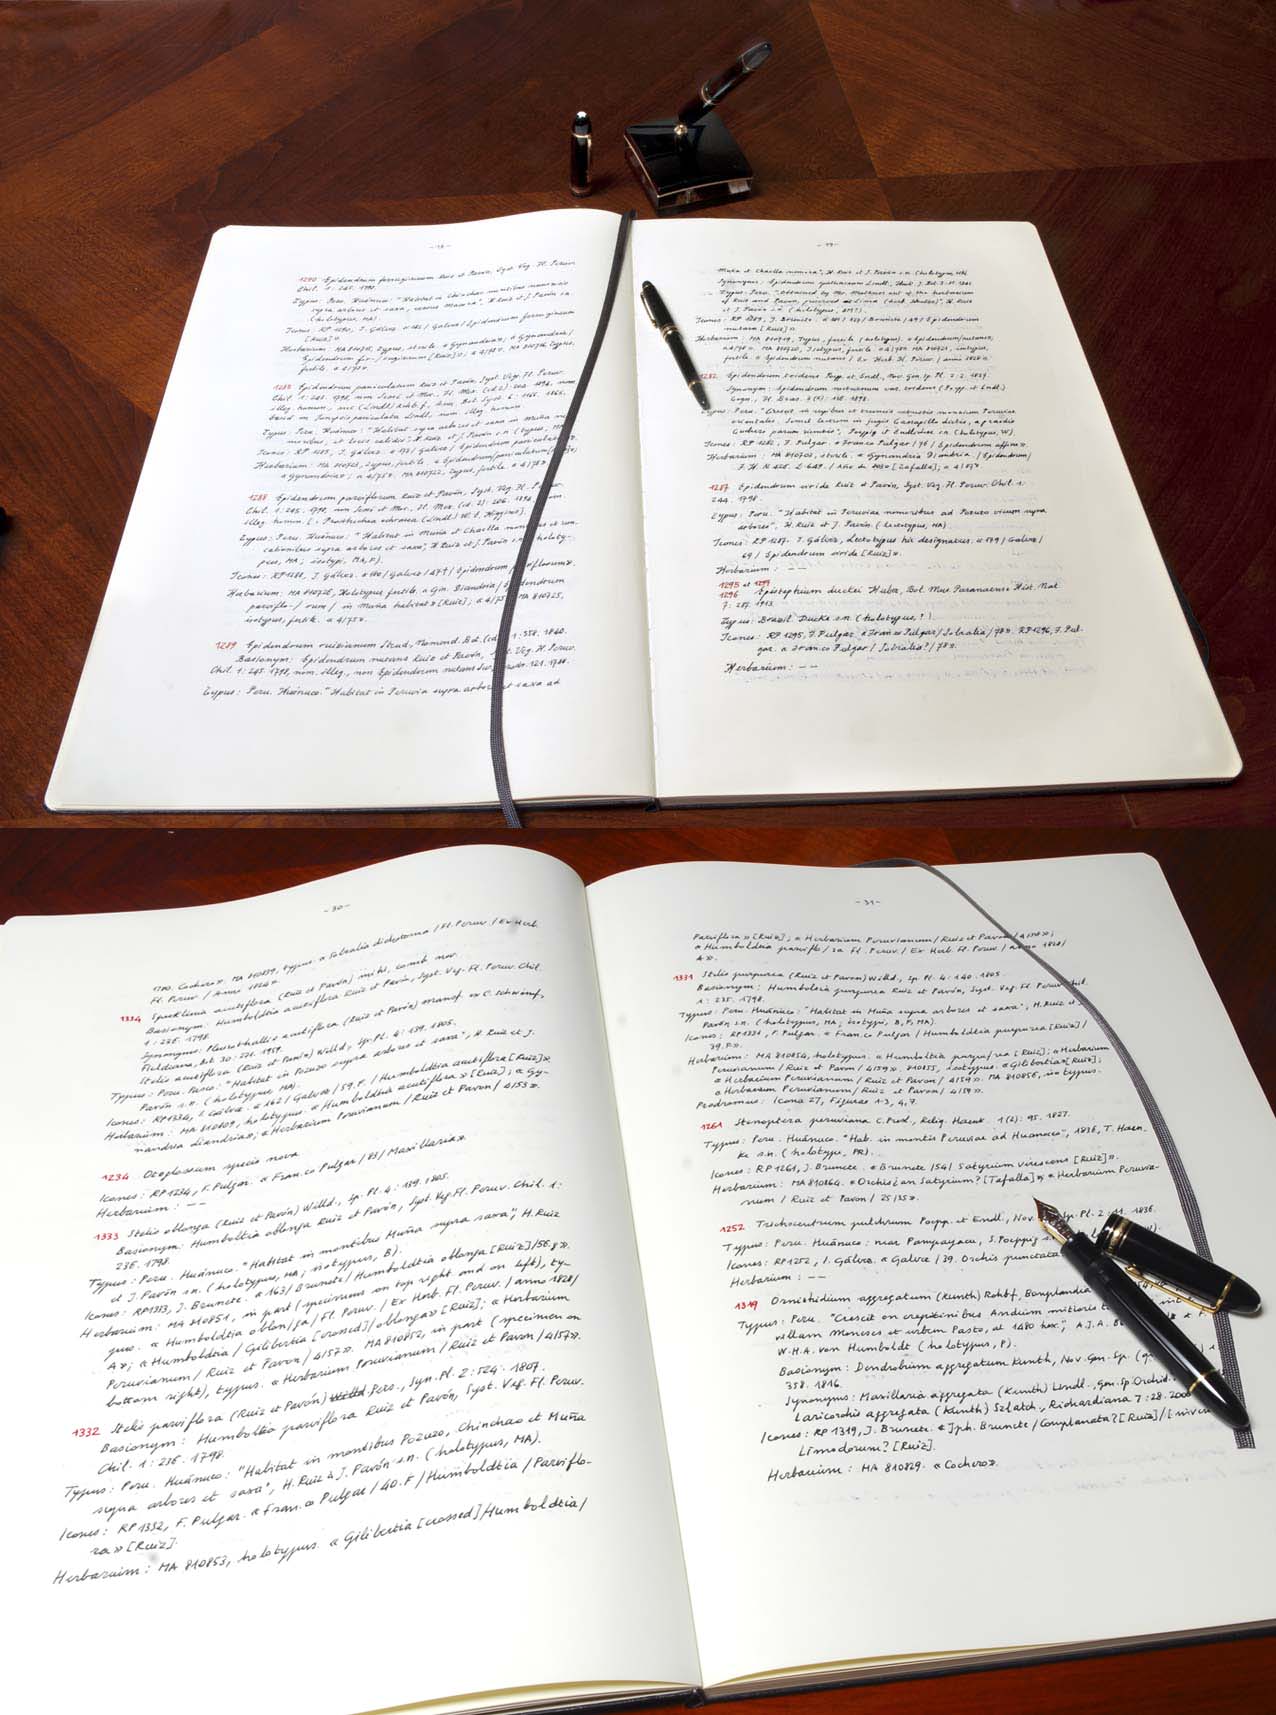 - 18 -
1290 Epidendrum ferrugineum Ruiz et Pavón, Syst. Veg. Fl. Peruv.
Chil. 1: 247. 1798.
Typus: Peru. Huánuco: "Habitat in Chinchao montibus nemorosis
supra arbores et saxa, versus Macora", H. Ruiz et J. Pavón s.n.
(holotypus, MA).
Icones: RP 1290, J. Gálvez. / Galvez / Epidendrum ferrugineum
[Ruiz]».
Herbarium: MA 810718, Typus, sterile. « Gynandria»; « Gynandria /
Epidendrum fer-/rugineum [Ruiz]»; « 4/78». MA Typus,
fertile. « 4/78»
Epidendrum paniculatum Ruiz et Pavón, Syst. Veg. Fl. Peruv.
Chil. 1: 243. 1798, non Sessé et Moc., Fl. Mex. (ed. 2): 1894, nom.
illeg. homon., nec (Lindl.)
based on paniculata Lindl., nom. illeg. homon.
Typus: Peru. Huánuco: "Habitat supra arbores et saxa in Muña ne-
moribus, et locis calidis", H. Ruiz et J. Pavón s.n. (typus, MA)
Icones: RP J. Gálvez. / Galvez / Epidendrum paniculat
Herbarium: MA 810723, typus, fertile. « Epidendrum/paniculatum
«Gynandria»; « 4/75». MA 810722, typus, fertile. « 4/75».
1288 Epidendrum parviflorum Ruiz et Pavón, Syst. Veg. Fl. Peruv.
Chil. 1: 245. 1798, non Sessé et Moc., Fl. Mex. (ed. 2): 206. 1894, nom.
illeg. homon. [= Prosthechea ochracea (Lindl.) W.E. Higgins].
Typus: Peru. Huánuco: "Habitat in Muña et Chaclla
supra arbores et saxa", H. Ruiz et J. Pavón s.n. (holoty-
pus, MA; isotypi, MA, F).
Icones: RP 1288, J. Gálvez. / Galvez / 47 / Epidendrum parviflorum».
Herbarium: MA 810726, Holotypus fertile. « Gin. Diandria / Epidendrum
parviflo-/ rum / in Muña habitat» [Ruiz]; « 4/75 MA 810725,
isotypus, fertile. « 4/75».
1289 Epidendrum ruizianum Steud., Nomencl. Bot. (ed. 2) 1: 558. 1840.
Basionym: Epidendrum nutans Ruiz et Pavón, Syst. Veg. Fl. Peruv.
Chil. 1: 245. 1798, nom. illeg., non Epidendrum nutans Sw. 121. 1788.
Typus: Peru. Huánuco. "Habitat in Peruvia supra arbores et saxa ad
- 19 -
Muña et Chaclla nemora", H. Ruiz et J. Pavón s.n. (holotypus, MA).
Synonymus: Epidendrum Lindl.,
Typus: Peru. "obtained by Mr. Mathews out of the herbarium
of Ruiz and Pavon, preserved at Lima (herb. Hooker)", H. Ruiz
et J. Pavón s.n. (holotypus, BM?).
Icones: RP 1289, J. Brunete. / Brunete / 49 / Epidendrum
nutans [Ruiz]».
Herbarium: MA 810719, Typus, fertile (holotypus). « Epidendrum/nutans»,
MA 810720, Isotypus, fertile. « 4/78». MA 810721, isotypus,
fertile. « Epidendrum nutans / Ex Herb. Fl. Peruv. / anno 1828».
1282 Epidendrum Poepp. et Endl., Nov. Gen. Sp. Pl. 2: 2. 1837.
Synonym: Epidendrum var. (Poepp. et Endl.)
Cogn., Fl. Bras. 3(5): 1898.
Typus: Peru. "Crescit in rupibus et truncis vetustis montium Peruviae
orientalis. Semel lectum in jugis Cassapillo dictis, a praedio
Cuchero parum remotis", Poeppig et Endlicher s.n. (holotypus, W).
Icones: RP 1282, F. Pulgar. « Franco Pulgar / 76 / Epidendrum affine».
Herbarium: MA 810705, sterile. « Gynandria Diandria. / Epidendrum/
F. H. N 425. L. 649. / Año de [Tafalla]; « 4/87»
1287 Epidendrum viride Ruiz et Pavón, Syst. Veg. Fl. Peruv. Chil. 1:
244. 1798.
Typus: Peru. "Habitat in Peruviae nemoribus ad Pozuzo vicum supra
arbores", H. Ruiz et J. Pavón. (lectotypus, MA)
Icones: RP 1287. J. Gálvez, Lectotypus hic designatus. « 179 / Galvez /
69 / Epidendrum viride [Ruiz]».
Herbarium: – –
1295 et 1297
1296 Epistephium duckei Huber, Bol. Mus. Paranaense Hist. Nat.
7: 287. 1913.
Typus: Brazil. Ducke s.n. (holotypus, ?).
Icones: RP 1295, F. Pulgar. «Franco Pulgar / Sobralia / 78». RP 1296, F. Pul-
gar. « Franco Pulgar / Sobralia? / 78».
Herbarium: – –
- 30 -
1780. Cochero». MA 810839, typus. « Sobralia dichotoma / Fl. Peruv. / Ex Herb.
Fl. Peruv. / Anno 1828»
1334 Specklinia acutiflora (Ruiz et Pavón) mihi, comb. nov.
Basionym: Humboldtia acutiflora Ruiz et Pavón, Syst. Veg. Fl. Peruv. Chil.
1: 235. 1798.
Synonymus: Pleurothallis acutiflora (Ruiz et Pavón) Mansf. ex C. Schweinf.,
Fieldiana, Bot. 30: 221. 1959.
Stelis acutiflora (Ruiz et Pavón) Willd., Sp. Pl. 4: 139. 1805.
Typus: Peru. Pasco: "Habitat in Pozuzo supra arbores et saxa", H. Ruiz et J.
Pavón s.n. (holotypus, MA).
Icones: RP 1334, I. Gálvez. « 162 / Galvez / 59.F. / Humboldtia acutiflora [Ruiz]».
Herbarium: MA 810809, holotypus. « Humboldtia acutiflora» [Ruiz]; « Gy-
nandria diandria»; « Herbarium Peruvianum / Ruiz et Pavon / 4/53».
1234 Otoglossum specis nova
Icones: RP 1234, F. Pulgar. « Fran.co Pulgar / 83 / Maxillaria».
Herbarium: – –
1333 Stelis oblonga (Ruiz et Pavón) Willd., Sp. Pl. 4: 139. 1805.
Basionym: Humboltia oblonga Ruiz et Pavón, Syst. Veg. Fl. Peruv. Chil. 1:
236. 1798.
Typus: Peru. Huánuco. "Habitat in montibus Muña supra saxa", H. Ruiz
et J. Pavón s.n. (holotypus, MA; isotypus, B).
Icones: RP 1333, J. Brunete. « 163 / Brunete / Humboldtia oblonga [Ruiz]/56.F».
Herbarium: MA 810851, in part (specimens on top right and on left), ty-
pus. « Humboldtia oblon/ga / Fl. Peruv. / Ex Herb. Fl. Peruv. / anno 1828/
A»; « Humboldtia / Gilibertia [crossed] / oblonga» [Ruiz]; « Herbarium
Peruvianum / Ruiz et Pavon / 4/57». MA 810852, in part (specimen on
bottom right), typus. « Herbarium Peruvianum / Ruiz et Pavon / 4/57».
1332 Stelis parviflora (Ruiz et Pavón) Willd. Pers., Syn. Pl. 2: 524. 1807.
Basionym: Humboltia parviflora Ruiz et Pavón, Syst. Veg. Fl. Peruv.
Chil. 1: 236. 1798.
Typus: Peru. Huánuco: "Habitat in montibus Pozuzo, Chinchao et Muña
supra arbores et saxa", H. Ruiz & J. Pavón s.n. (holotypus, MA).
Icones: RP 1332, F. Pulgar. « Fran.co Pulgar / 40.F / Humboldtia / Parviflo-
ra» [Ruiz].
Herbarium: MA 810853, holotypus. « Gilibertia [crossed]/Humboldtia/
- 31 -
Parviflora» [Ruiz]; « Herbarium Peruvianum / Ruiz et Pavon / 4/58»;
« Humboldtia parviflo / ra Fl. Peruv. / Ex Herb. Fl. Peruv. / anno 1828/
A».
1331 Stelis purpurea (Ruiz et Pavon) Willd., Sp. Pl. 4: 140. 1805.
Basionym: Humboltia purpurea Ruiz et Pavón, Syst. Veg. Fl. Peruv. Chil.
1: 235. 1798.
Typus: Peru. Huánuco: "Habitat in Muña supra arbores et saxa", H. Ruiz et J.
Pavón s.n. (holotypus, MA; isotypi, B, F, MA).
Icones: RP 1331, F. Pulgar. « Fran.co Pulgar / Humboldtia purpurea [Ruiz] /
39.F.».
Herbarium: MA 810854, holotypus. « Humboltia purpu/rea [Ruiz]; « Herbarium
Peruvianum / Ruiz et Pavon / 4/59». 810855, isotypus. « Gilibertia» [Ruiz];
« Herbarium Peruvianum / Ruiz et Pavon / 4/59». MA 810856, isotypus.
« Herbarium Peruvianum / Ruiz et Pavon / 4/59».
Prodromus: Icona 27, Figuras 1-3, 4,7.
1261 Stenoptera peruviana C. Presl., Reliq. Haenk. 1(2): 95. 1827.
Typus: Peru. Huánuco. "Hab. in montis Peruviae ad Huanoco", 1836, T. Haen-
ke s.n. (holotype, PR).
Icones: RP 1261, J. Brunete. « Brunete / 54 / Satyrium virescens [Ruiz]».
Herbarium: MA 810864. « Orchis? an Satyrium? [Tafalla]»; « Herbarium Peruvia-
num / Ruiz et Pavon / 25/35».
1252 Trichocentrum pulchrum Poepp. et Endl., Nov. Sp. Pl. 2: 11. 1836.
Typus: Peru. Huánuco: near Pampayacu, S. Poeppig
Icones: RP 1252, I. Gálvez. « Galvez / 39. Orchis punctata
Herbarium: – –
1319 Ornithidium aggregatum (Kunth) Rchb.f., Bonplandia
Typus: Peru. "Crescit on crepitinibus Andium mitioris
villam Meneses et urbem Pasto, at 1480 hex.", A.J.A.
W.H.A. von Humboldt (holotypus, P).
Basionym: Dendrobium aggregatum Kunth, Nov. Gen. Sp. (
358. 1816.
Synonymus: Maxillaria aggregata (Kunth) Lindl., Gen. Sp. Orchid.
Laricorchis aggregata (Kunth) Szlach., Richardiana 7: 28.
Icones: RP 1319, J. Brunete. « Jph. Brunete / Complanata? [Ruiz] /
Limodorum? [Ruiz].
Herbarium: MA 810829. « Cochero».